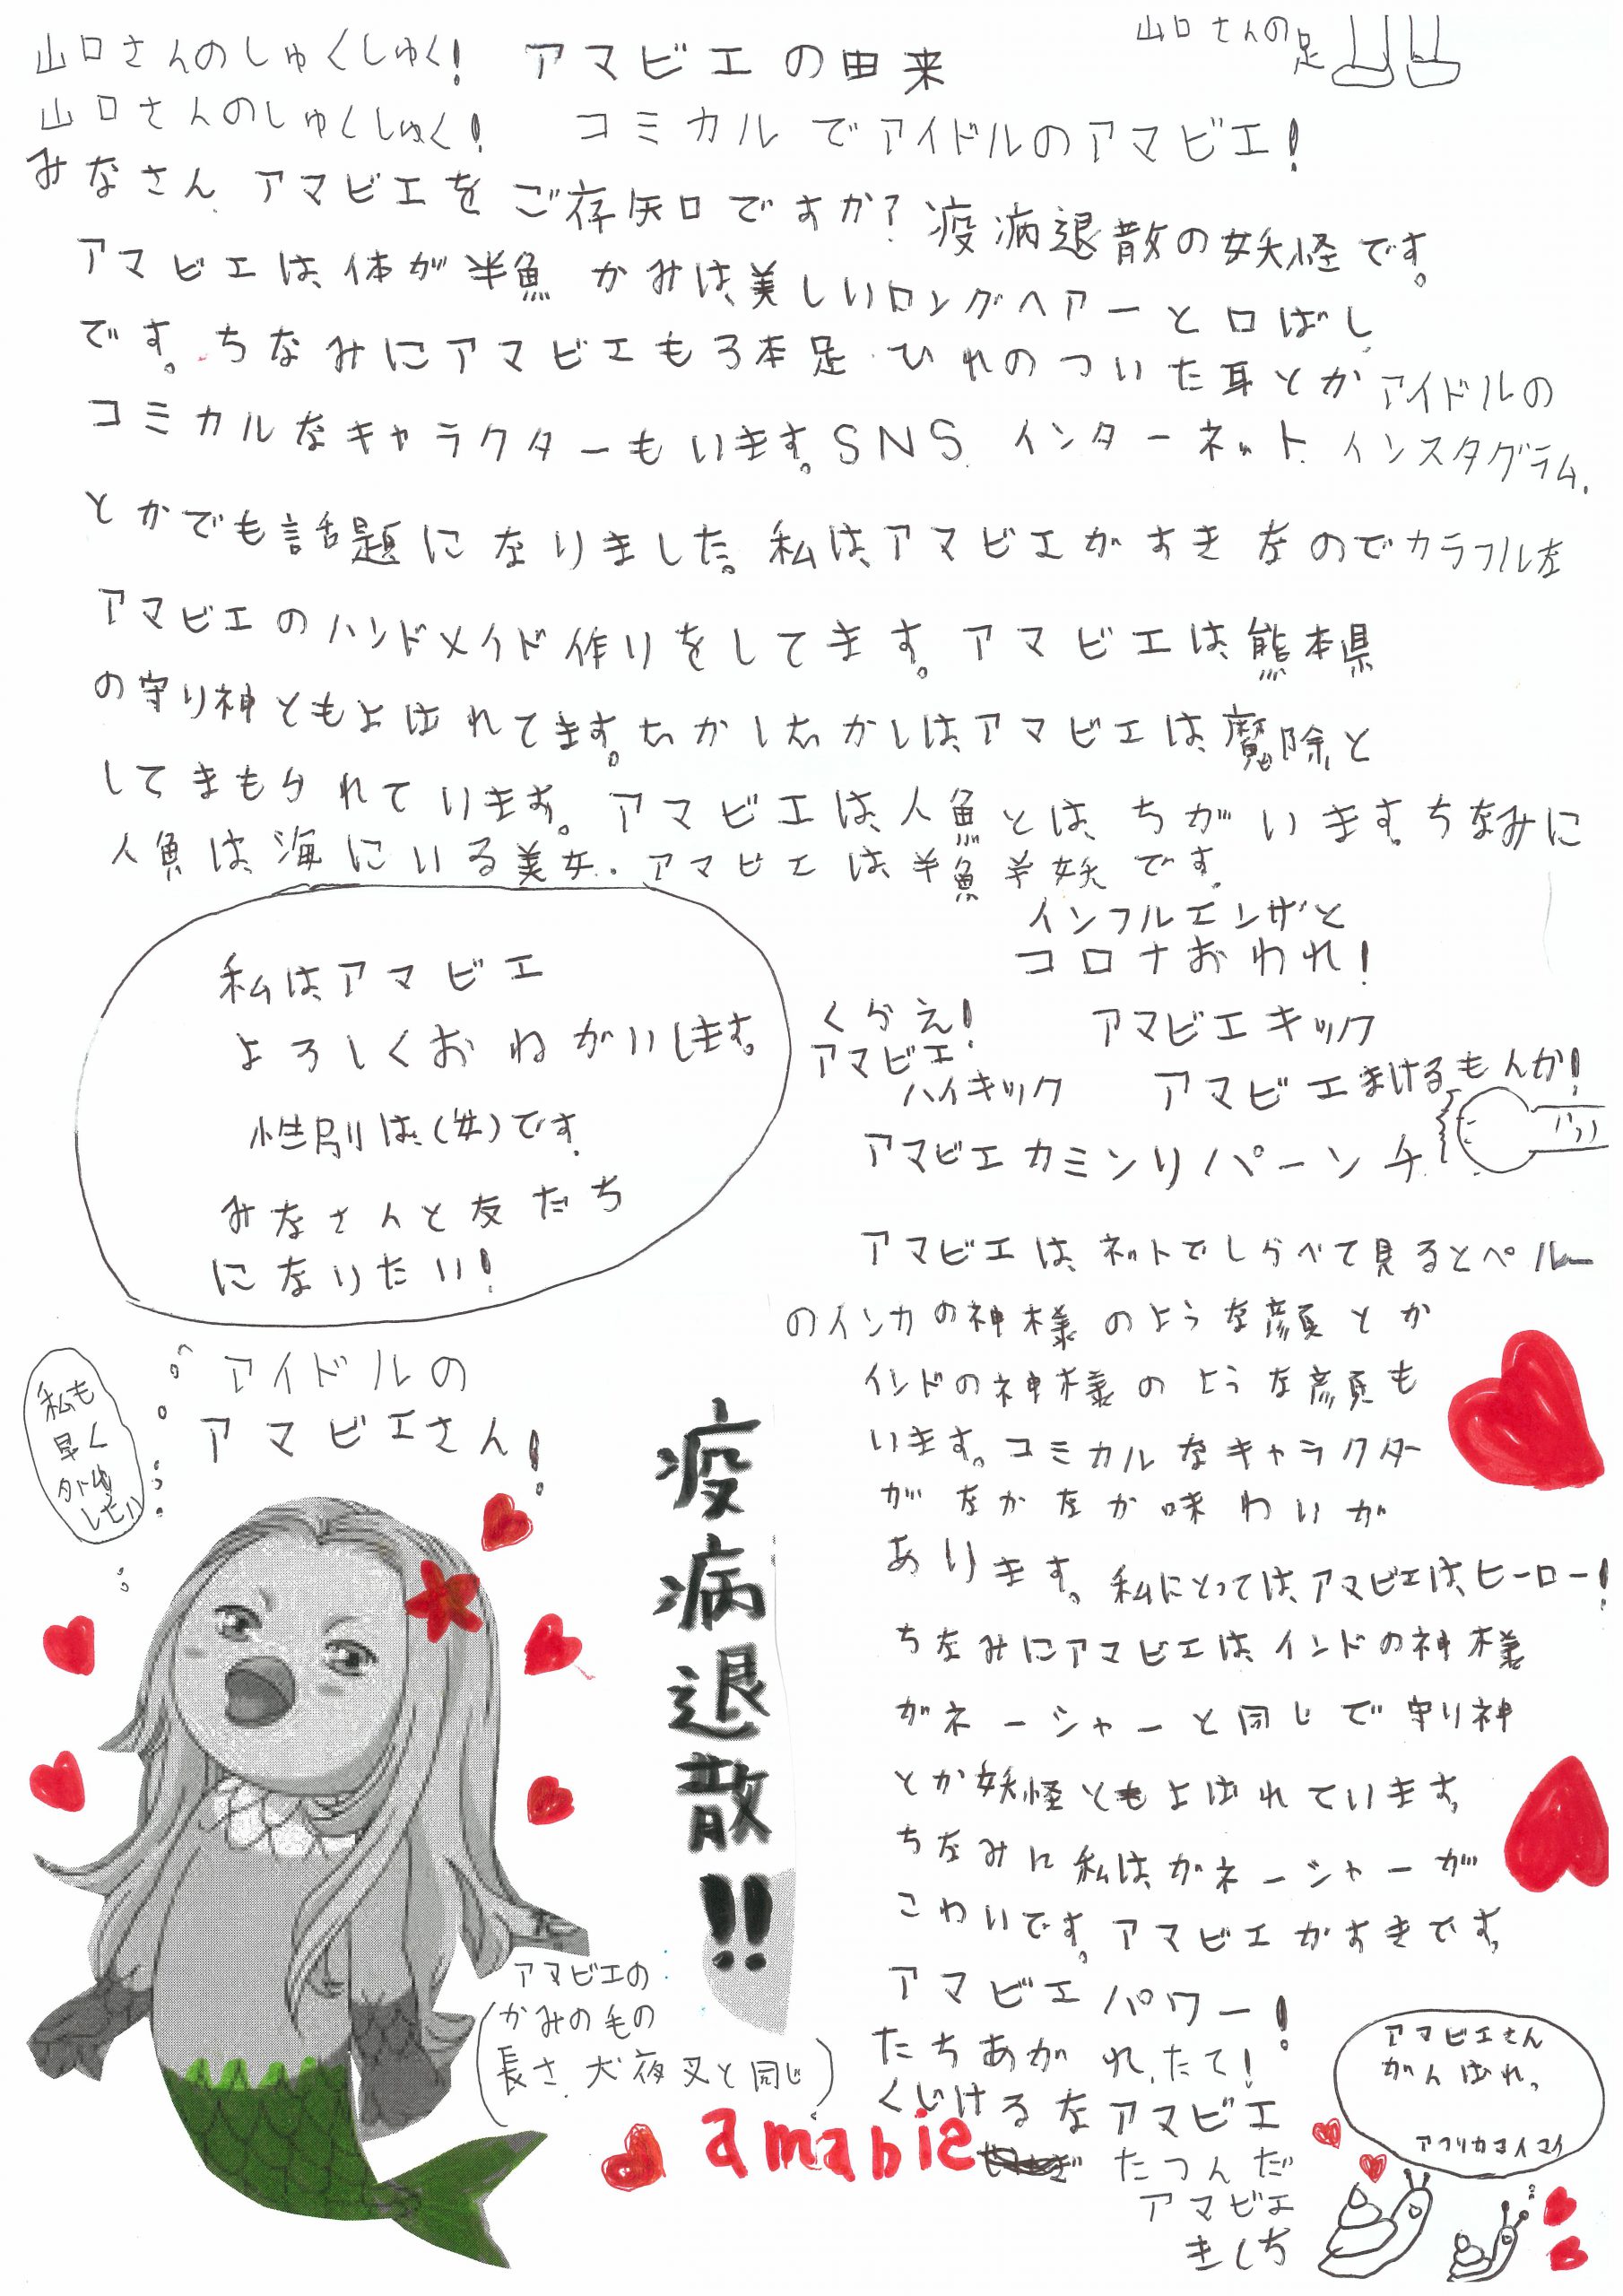 山口さんのしゅくしゅく！ アマビエの由来
山口さんの足
山口さんのしゅくしゅく！ コミカルでアイドルのアマビエ！
みなさん、アマビエをご存知ですか？疫病退散の妖怪です。
アマビエは、体が半魚 かみは、美しいロングヘアーと口ばし
です。ちなみにアマビエも3本足 ひれのついた耳とか アイドルの
コミカルなキャラクターもいます。SNS、インターネット、インスタグラム、
とかでも話題になりました。私は、アマビエがすきなのでカラフルな
アマビエのハンドメイド作りをしてます。アマビエは、熊本県
の守り神ともよばれてます。むかしむかしは、アマビエは、魔除と
してまもられています。アマビエは、人魚とは、ちがいます。ちなみに
人魚は、海にいる美女、アマビエは、半魚半妖です。
私は、アマビエ
よろしくおねがいします。
性別は、（女）です。
みなさんと友だち
になりたい！
インフルエンザと
コロナおわれ！
くらえ！ アマビエキック
アマビエ
ハイキック
アマビエまけるもんか！
アマビエカミンリパーンチ
アマビエは、ネットでしらべて見るとペルー
のインカの神様のような顔とか
インドの神様のような顔も
います。コミカルなキャラクター
がなかなか味わいが
あります。私にとっては、アマビエは、ヒーロー！
ちなみにアマビエは、インドの神様
ガネーシャーと同じで守り神
とか妖怪ともよばれています。
ちなみに私は、ガネーシャーが
こわいです。アマビエがすきです。
アマビエパワー！
たちあがれ、たて！
くじけるなアマビエ
たつんだ
アマビエ
きしち
私も
早く
外出
したい
アイドルの
アマビエさん！
疫病退散!!
アマビエの
かみの毛の
長さ、犬夜叉と同じ
amabie
アマビエさん
がんばれ。
アフリカマイマイ